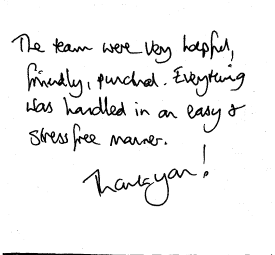 The team were very helpful,
friendly, punctual. Everything
was handled in an easy &
stress free manner.
Thank you!